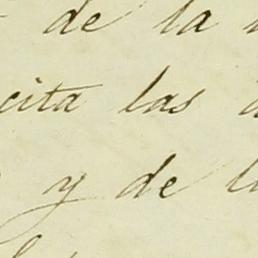 de la
cita las
y de